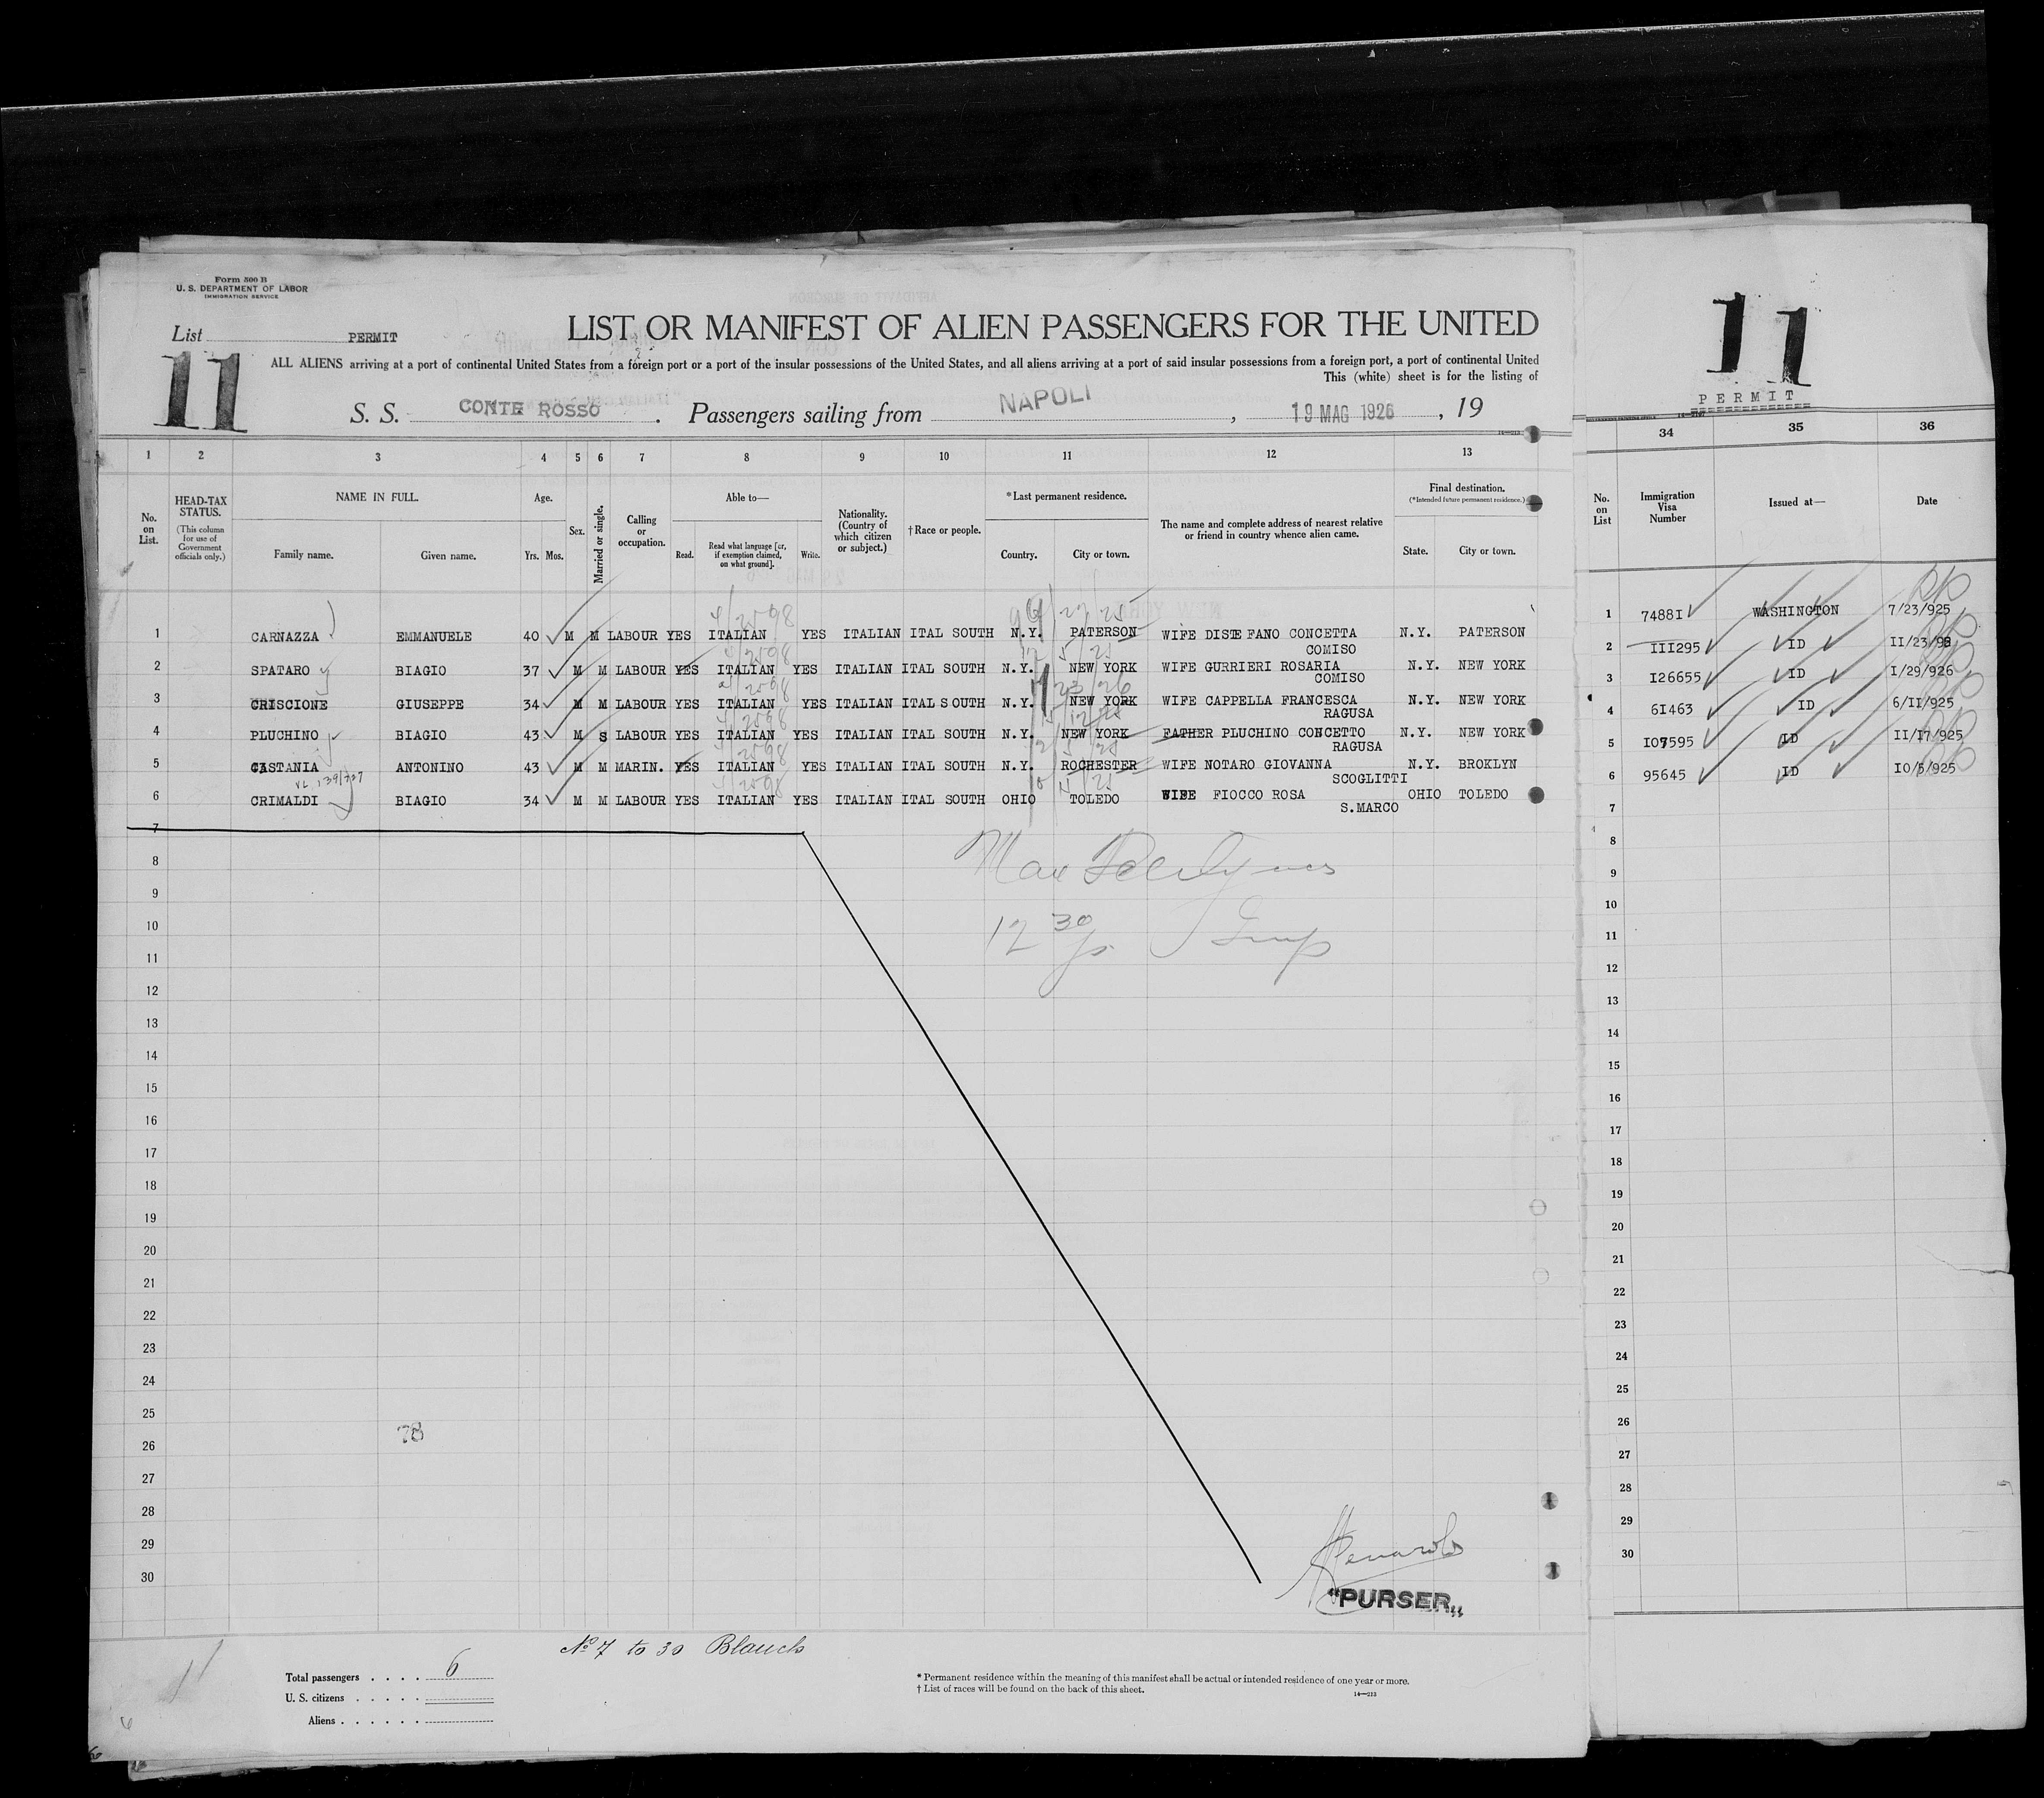 Form 500 B
U. S. DEPARTMENT OF LABOR
IMMIGRATION SERVICE
List PERMIT
11
LIST OR MANIFEST OF ALIEN PASSENGERS FOR THE UNITED
ALL ALIENS arriving at a port of continental United States from a foreign port or a port of the insular possessions of the United States, and all aliens arriving at a port of said insular possessions from a foreign port, a port of continental United
This (white) sheet is for the listing of
S. S. CONTE ROSSO. Passengers sailing from NAPOLI, 19 MAG 1926, 19
14—213
1 2 3 4 5 6 7 8 9 10 11 12 13
No. on List.
HEAD-TAX STATUS.
(This column for use of Government officials only.)
NAME IN FULL.
Family name.
Given name.
Age.
Yrs. Mos.
Sex.
Married or single.
Calling or occupation.
Able to—
Read.
Read what language [or, if exemption claimed, on what ground].
Write.
Nationality. (Country of which citizen or subject.)
† Race or people.
* Last permanent residence.
Country.
City or town.
The name and complete address of nearest relative or friend in country whence alien came.
Final destination.
(*Intended future permanent residence.)
State.
City or town.
1 CARNAZZA EMMANUELE 40 M M LABOUR YES ITALIAN YES ITALIAN ITAL SOUTH N.Y. PATERSON WIFE DISTEFANO CONCETTA COMISO N.Y. PATERSON
2 SPATARO BIAGIO 37 M M LABOUR YES ITALIAN YES ITALIAN ITAL SOUTH N.Y. NEW YORK WIFE GURRIERI ROSARIA COMISO N.Y. NEW YORK
3 CRISCIONE GIUSEPPE 34 M M LABOUR YES ITALIAN YES ITALIAN ITAL SOUTH N.Y. NEW YORK WIFE CAPPELLA FRANCESCA RAGUSA N.Y. NEW YORK
4 PLUCHINO BIAGIO 43 M S LABOUR YES ITALIAN YES ITALIAN ITAL SOUTH N.Y. NEW YORK FATHER PLUCHINO CONCETTO RAGUSA N.Y. NEW YORK
5 CASTANIA ANTONINO 43 M M MARIN. YES ITALIAN YES ITALIAN ITAL SOUTH N.Y. ROCHESTER WIFE NOTARO GIOVANNA SCOGLITTI N.Y. BROKLYN
6 CRIMALDI BIAGIO 34 M M LABOUR YES ITALIAN YES ITALIAN ITAL SOUTH OHIO TOLEDO WIFE FIOCCO ROSA S.MARCO OHIO TOLEDO
7
8
9
10
11
12
13
14
15
16
17
18
19
20
21
22
23
24
25
26
27
28
29
30
12 30
78
"PURSER„
No 7 to 30 Blanck
11
Total passengers . . . . 6
U. S. citizens . . . . .
Aliens . . . . . .
* Permanent residence within the meaning of this manifest shall be actual or intended residence of one year or more.
† List of races will be found on the back of this sheet.
14—213
11
PERMIT
34 35 36
No. on List
Immigration Visa Number
Issued at—
Date
1 7488I WASHINGTON 7/23/925
2 III295 ID
3 I26655 ID I/29/926
4 6I463 ID 6/II/925
5 I07595 ID II/I7/925
6 95645 ID I0/5/925
7
8
9
10
11
12
13
14
15
16
17
18
19
20
21
22
23
24
25
26
27
28
29
30